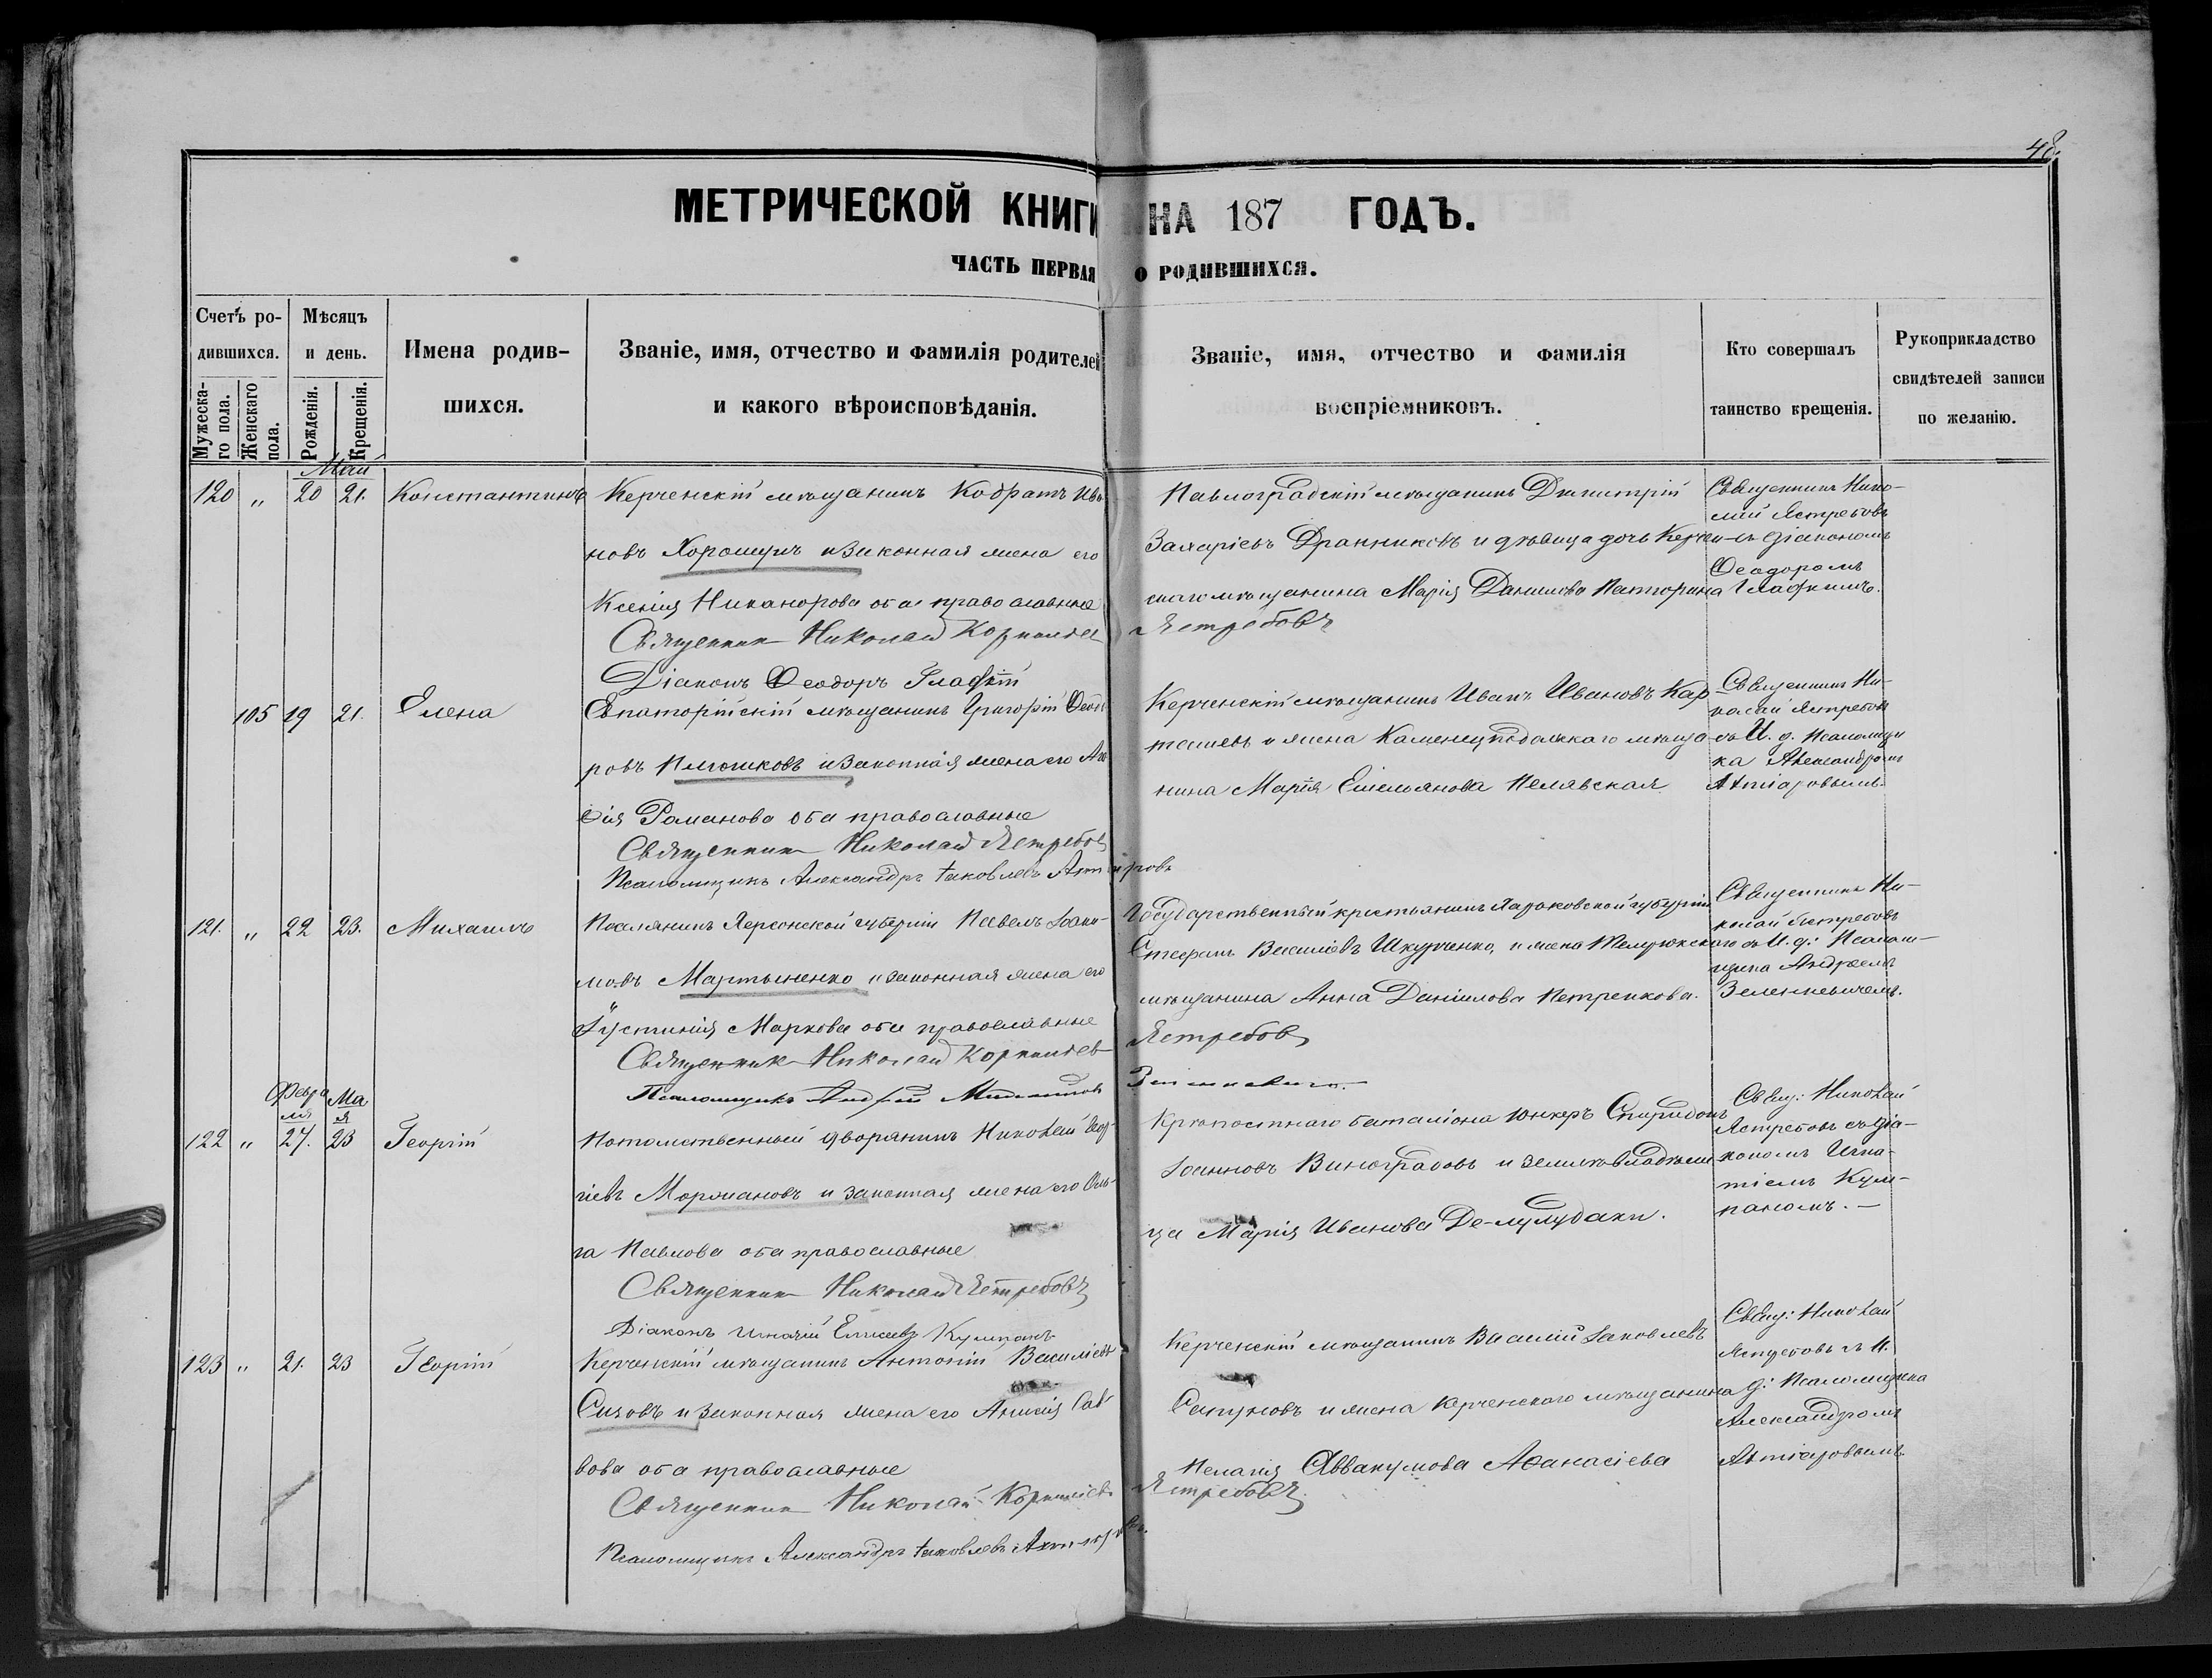 48
МЕТРИЧЕСКОЙ КНИГИ НА 187 ГОДЪ.
ЧАСТЬ ПЕРВАЯ О РОДИВШИХСЯ.
Счетъ ро-
дившихся.
Мужеска-
го пола.
Женскаго
пола.
Мѣсяцъ
и день.
Рожденія.
Крещенія.
Имена родив-
шихся.
Званіе, имя, отчество и фамилія родителей
и какого вѣроисповѣданія.
Званіе, имя, отчество и фамилія
воспріемниковъ.
Кто совершалъ
таинство крещенія.
Рукоприкладство
свидѣтелей записи
по желанію.
Май
120 " 20 21. Константинъ
Керченскій мѣщанинъ Кодратъ Ива
новъ Хорошунъ и законная жена его
Ксенія Никанорова оба православные
Священникъ Николай Корнильев Ястребовъ
Діаконъ Ѳеодоръ Глафкій
Павлоградскій мѣщанинъ Димитрій
Захаріевъ Дранниковъ и дѣвица дочь Керчен-
скаго мѣщанина Марія Данилова
Священникъ Нико-
лай Ястребовъ
съ діакономъ
Ѳеодоромъ
Глафкимъ.
105 19 21. Елена
Евпаторійскій мѣщанинъ Григорій Ѳеодо
ровъ Плюшковъ и законная жена его Ага
ѳія Романова оба православные
Священникъ Николай Ястребовъ
Псаломщикъ Александръ Іаковлевъ Ахтіаровъ
Керченскій мѣщанинъ Иванъ Ивановъ Кар
ташевъ и жена Каменецподольскаго мѣща-
нина Марія Емельянова Пелявская
Священникъ Ни-
колай Ястребовъ
съ И. д. Псаломщи
ка Александромъ
Ахтіаровымъ.
121. " 22 23. Михаилъ
Поселянинъ Херсонской губерніи Павелъ Іоаки-
мовъ Мартыненко и законная жена его
Іустинія Маркова оба православные
Священникъ Николай Корнильев Ястребовъ
Псаломщикъ Андрей
Государственный крестьянинъ Харьковской губерніи
Стефанъ Василіевъ Шкурченко, и жена Темрюкскаго
мѣщанина Анна Даніилова Петренкова.
Священникъ Ни-
колай Ястребовъ
съ И. д: Псалом-
щика Андреемъ
Зеленкевичемъ.
Февра
ля
Ма
я
122 " 27. 23 Георгій
Потомственный дворянинъ Николай Геор-
гіевъ Моргиановъ и законная жена его Оль-
га Павлова оба православные
Священникъ Николай Ястребовъ
Діаконъ Игнатій Елисеевъ Кумпанъ
Крѣпостнаго баталіона Юнкеръ Спиридонъ
Іоанновъ Виноградовъ и землевладѣли
ца Марія Иванова Де-лулудаки.
Свящ: Николай
Ястребовъ съ діа-
кономъ Игна-
тіемъ Кум-
паномъ. —
123 " 21. 23 Георгій
Керченскій мѣщанинъ Антоній Василіевъ
Сизовъ и законная жена его Анисія Сав-
вова оба православные
Священникъ Николай Корнильевъ Ястребовъ.
Псаломщикъ Александръ Іаковлевъ Ахтіаровъ.
Керченскій мѣщанинъ Василій Іаковлевъ
Сапуновъ и жена Керченскаго мѣщанина
Пелагія Аввакумова Аѳанасіева
Свящ: Николай
Ястребовъ съ И.
д: Псаломщика
Александромъ
Ахтіаровымъ.